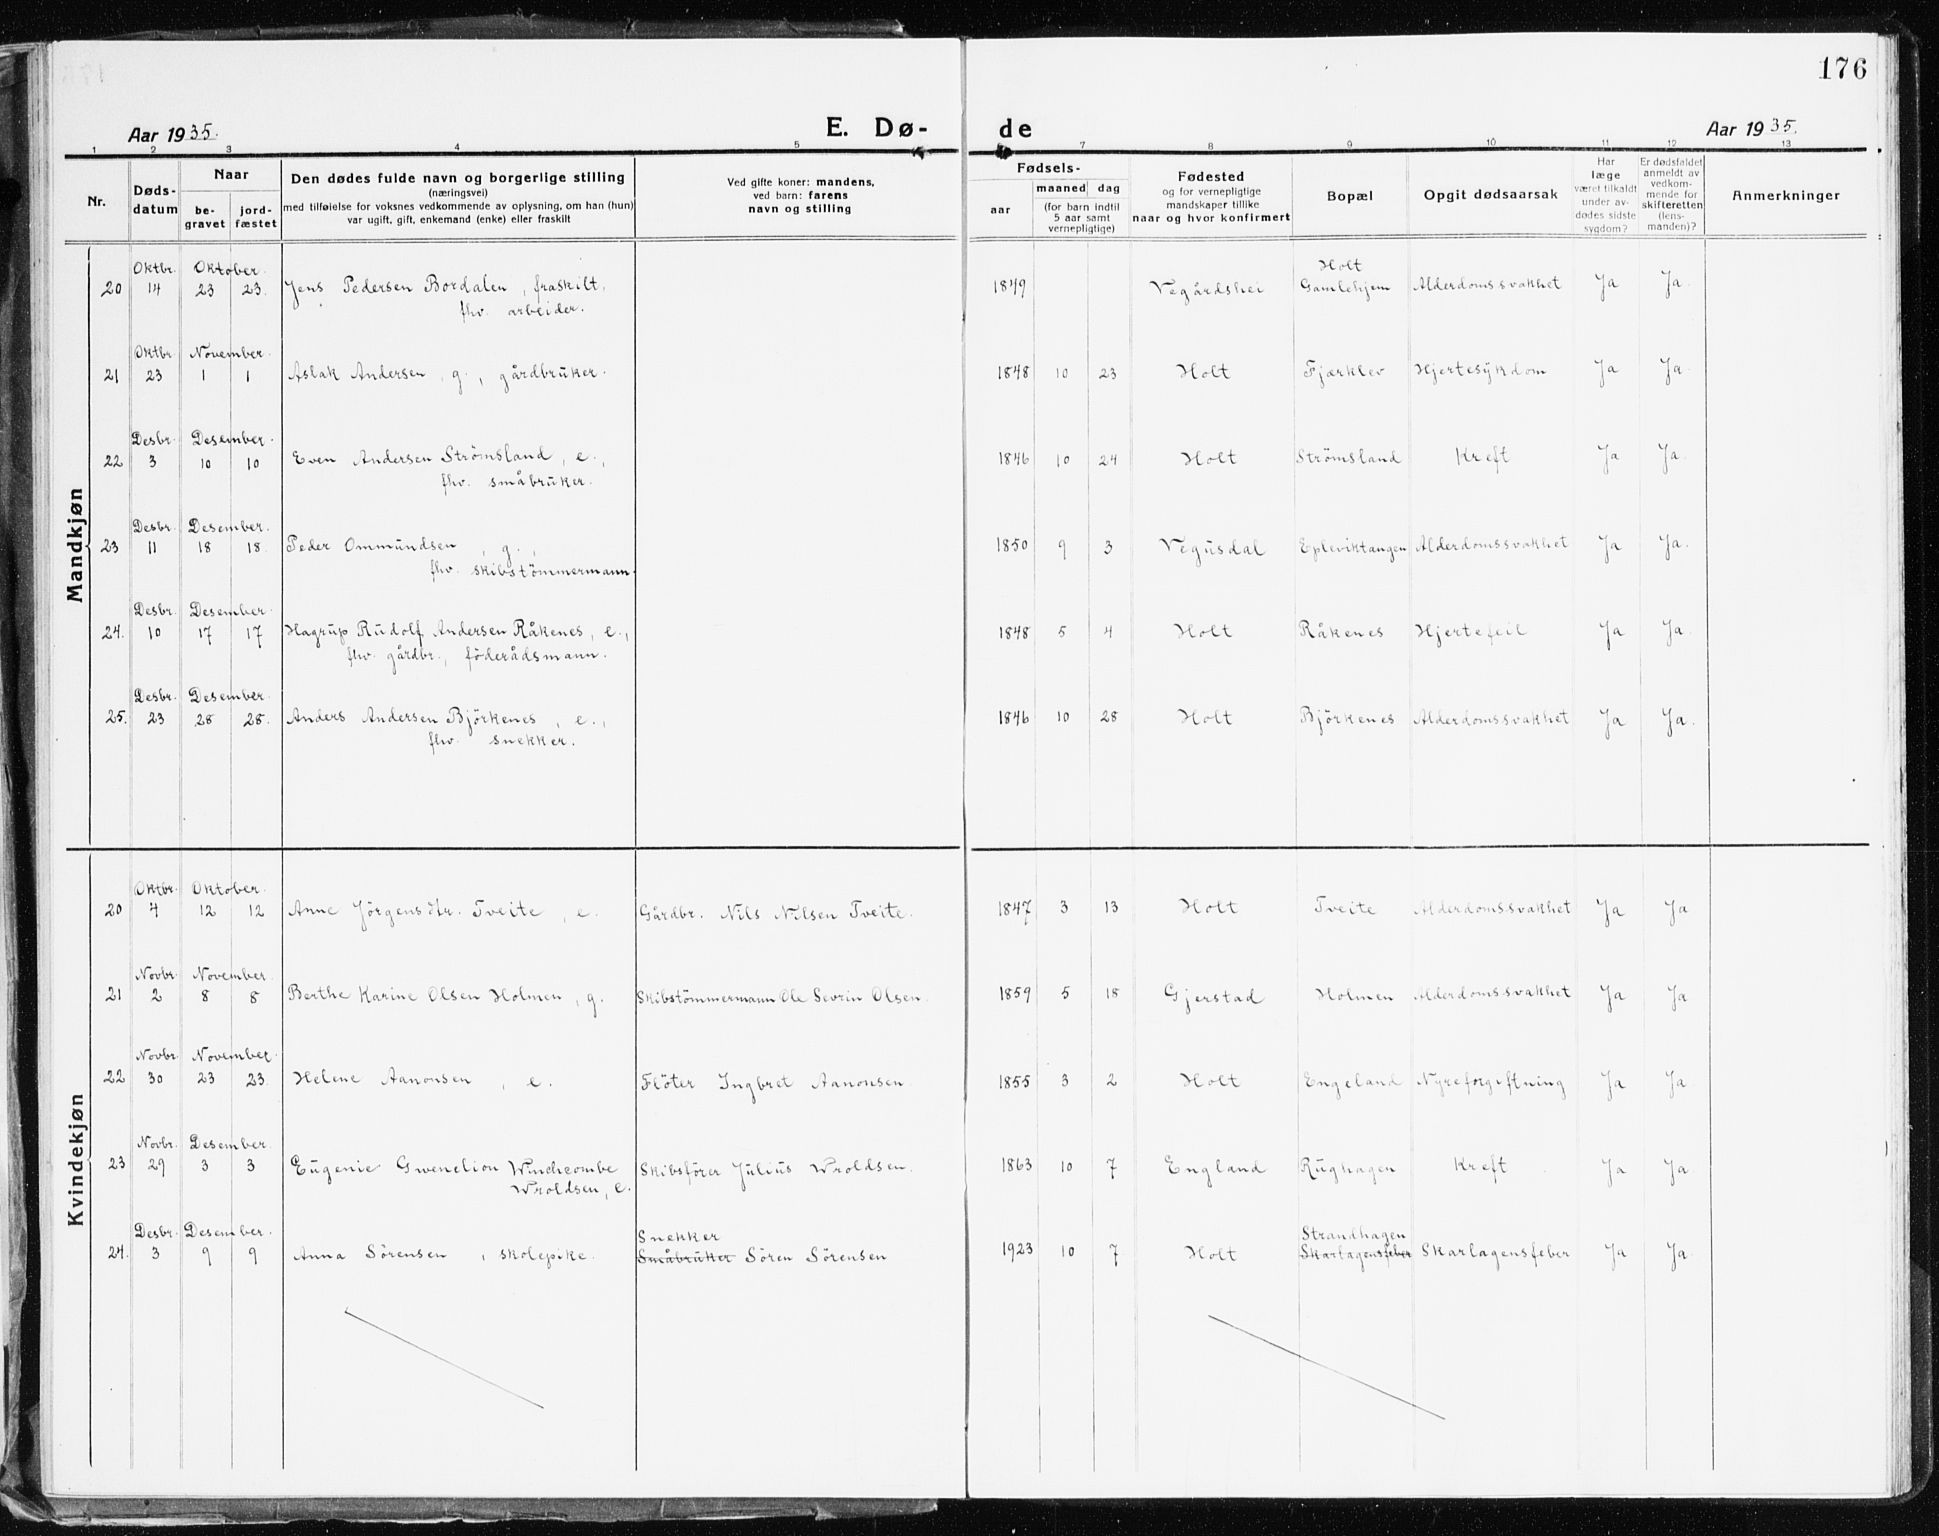 176
Aar 1935.
E. Dø-
de
Aar 1935.
1 2 3 4 5 7 8 9 10 11 12 13
Nr.
Døds-
datum
Naar
be-
gravet
jord-
fæstet
Den dødes fulde navn og borgerlige stilling
(næringsvei)
med tilføielse for voksnes vedkommende av oplysning, om han (hun)
var ugift, gift, enkemand (enke) eller fraskilt
Ved gifte koner: mandens,
ved barn: farens
navn og stilling
Fødsels-
aar
maaned dag
(for barn indtil
5 aar samt
vernepligtige)
Fødested
og for vernepligtige
mandskaper tillike
naar og hvor konfirmert
Bopæl
Opgit dødsaarsak
Har
læge
været tilkaldt
under av-
dødes sidste
sygdom?
Er dødsfaldet
anmeldt av
vedkom-
mende for
skifteretten
(lens-
manden)?
Anmerkninger
Mandkjøn
Oktbr. Oktober. Holt
20 14 23 23. Jens Pedersen Bordalen, fraskilt, 1849 Vegårdshei Gamlehjem Alderdomssvakhet Ja Ja.
fhv. arbeider.
Oktbr. November.
21 23 1 1 Aslak Andersen, g., gårdbruker. 1848 10 23 Holt Fjærklev Hjertesykdom Ja Ja.
Desbr. Desember.
22 3 10 10 Even Andersen Strömsland, e., 1846 10 24 Holt Strömsland Kreft Ja Ja.
fhv. småbruker.
Desbr. Desember.
23 11 18 18. Peder Ommundsen, g., 1850 9 3 Vegusdal Epleviktangen Alderdomssvakhet Ja Ja.
fhv. skibstömmermann.
Desbr. Desember.
24. 10 17 17 Hagrup Rudolf Andersen Råkenes, e., 1848 5 4 Holt Råkenes Hjertefeil Ja Ja.
fhv. gårdbr., föderådsmann.
Desbr. Desember.
25. 23 28 28. Anders Andersen Björkenes, e., 1846 10 28 Holt Björkenes Alderdomssvakhet Ja Ja.
fhv. snekker.
Kvindekjøn
Oktbr. Oktober.
20 4 12 12 Anne Jörgensdtr. Tveite, e. Gårdbr. Nils Nilsen Tveite. 1847 3 13 Holt Tveite Alderdomssvakhet Ja Ja
Novbr. November.
21 2 8 8 Berthe Karine Olsen Holmen, g. Skibstömmermann Ole Sevrin Olsen. 1859 5 18 Gjerstad Holmen Alderdomssvakhet Ja Ja
Novbr. November.
22 30 23 23. Helene Aanonsen, e. Flöter Ingbret Aanonsen. 1855 3 2 Holt Engeland Nyreforgiftning Ja Ja.
Novbr. Desember.
23 29 3 3 Eugenie Gwenelion Winchcombe Skibsförer Julius Wroldsen. 1863 10 7 England Rughagen Kreft Ja Ja.
Wroldsen, e.
Desbr. Desember. Snekker Strandhagen
24. 3 9 9 Anna Sörensen, skolepike. Småbruker Sören Sörensen 1923 10 7 Holt Skarlagensfeber Skarlagensfeber Ja Ja.